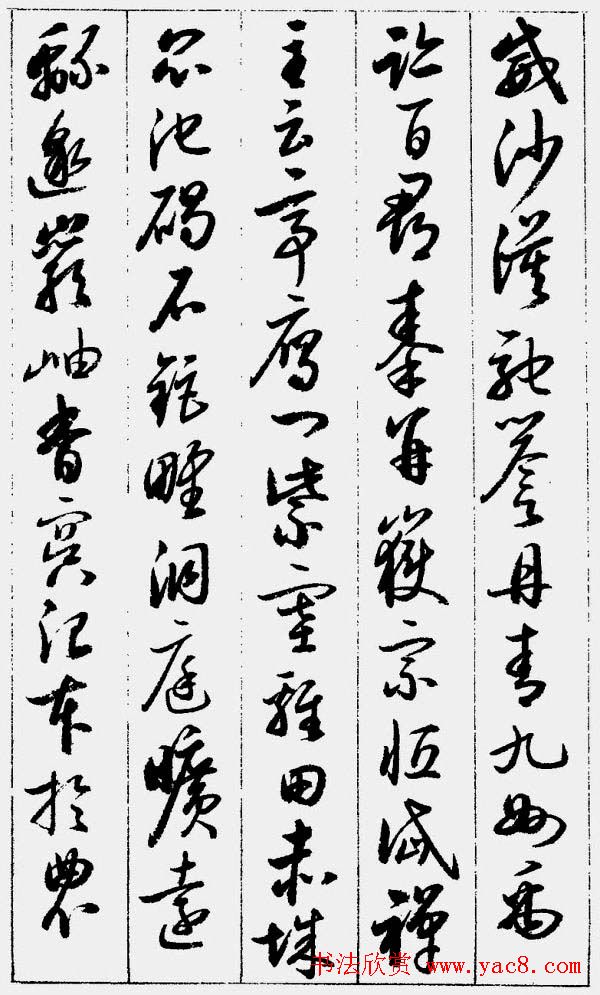 威沙漠馳譽丹青九州禹
跡百郡秦并嶽宗恒岱禪
主云亭鴈門紫塞雞田赤城
昆池碣石鉅野洞庭曠遠
緜邈巖岫杳冥治本於農
书法欣赏 www.yac8.com